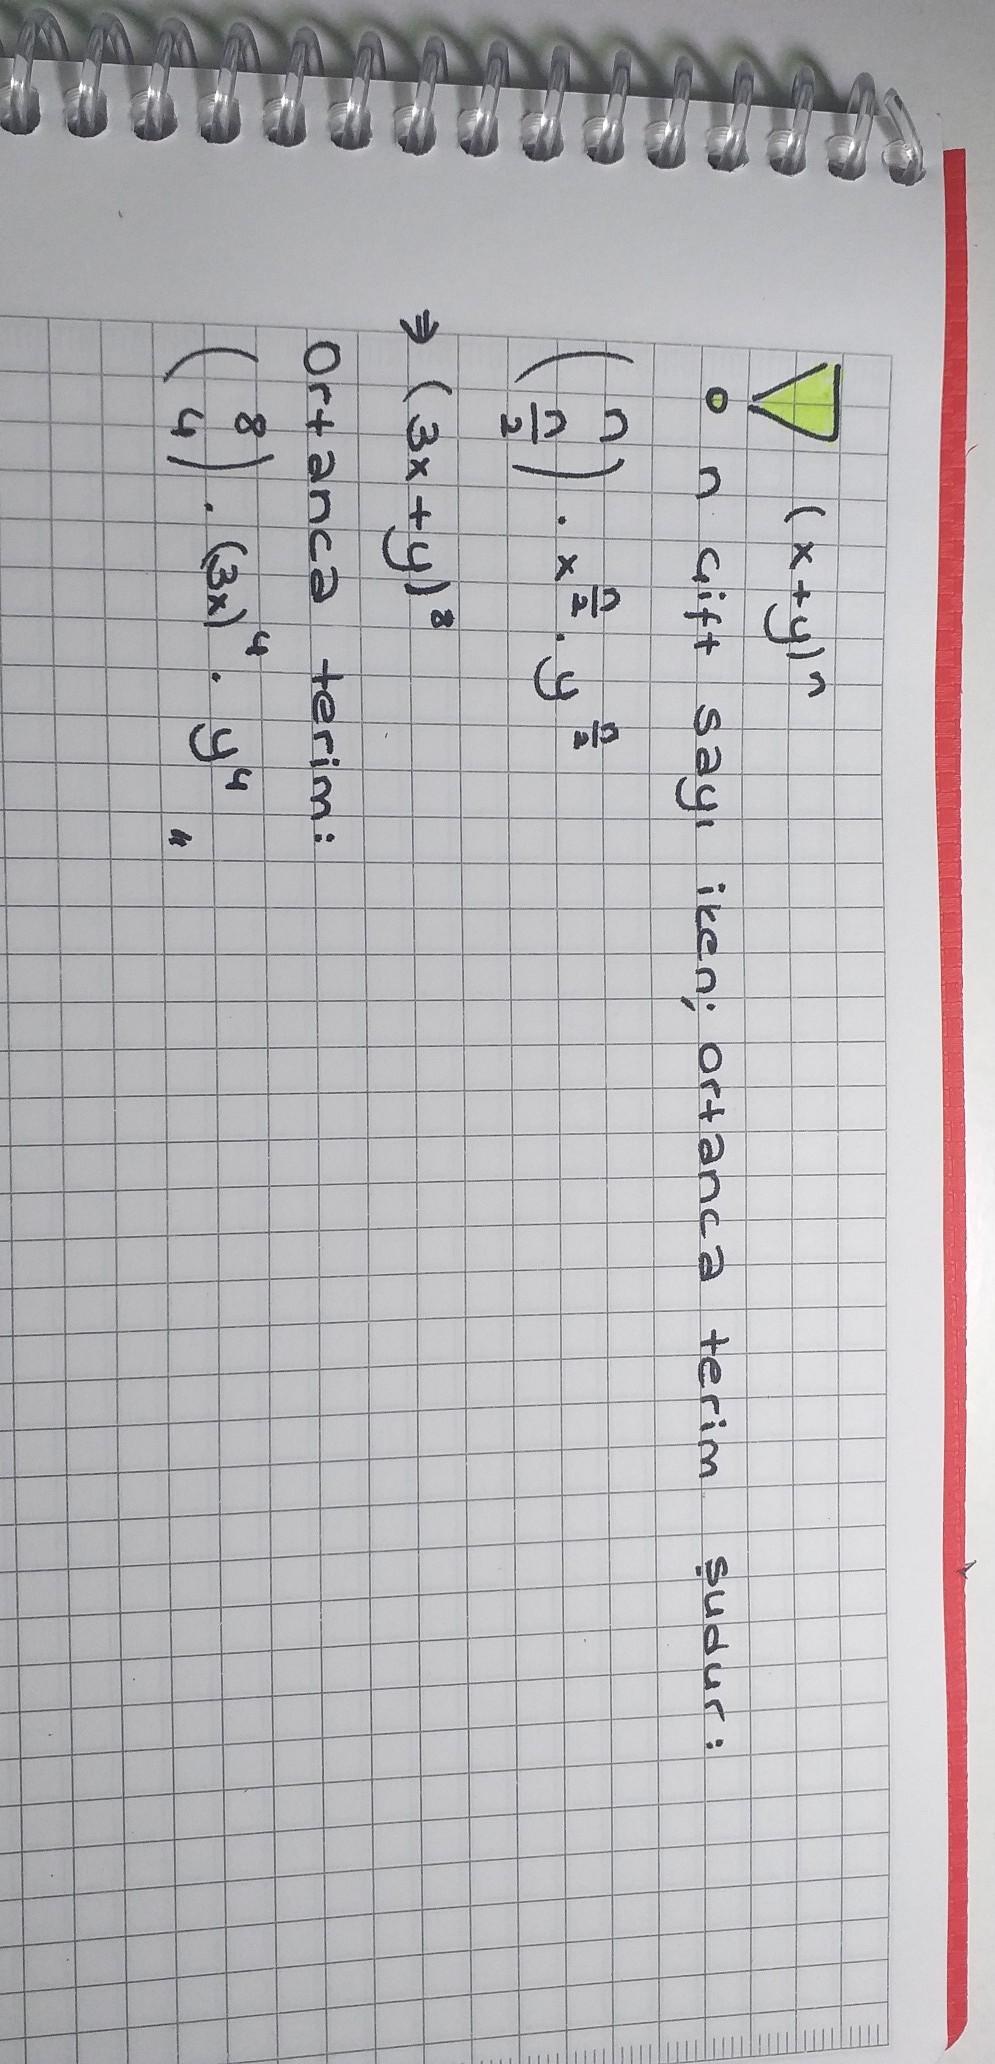 (x+y)ⁿ
o n çift sayı iken; ortanca terim şudur:
(n n/2) . x^(n/2) . y^(n/2)
⇒ (3x+y)⁸
Ortanca terim:
(8 4) . (3x)⁴ . y⁴ "